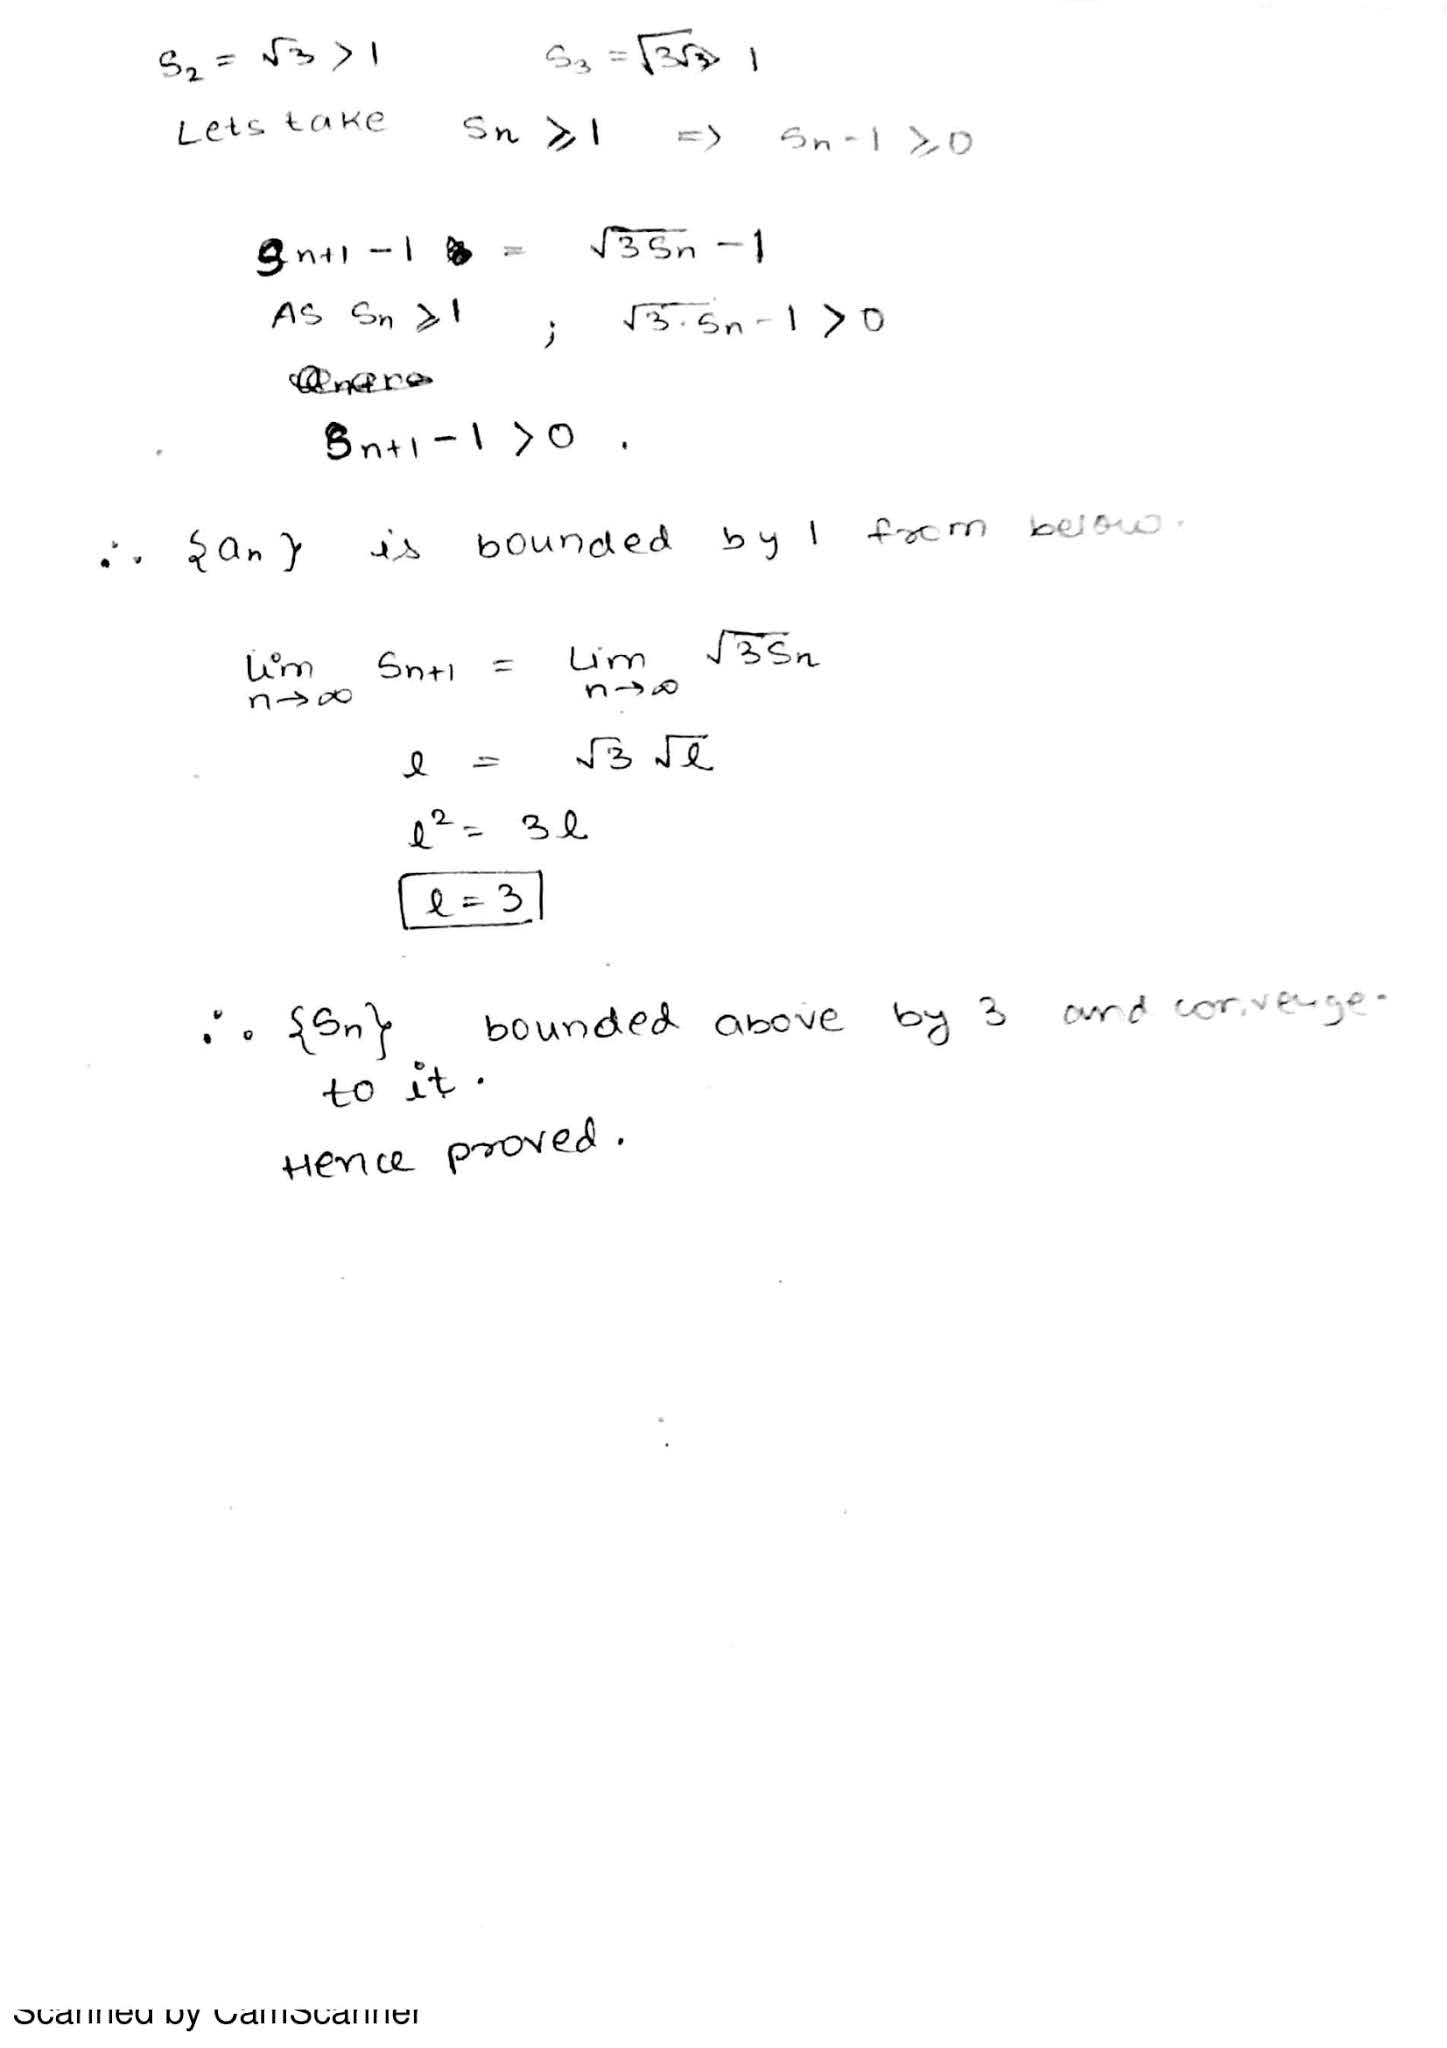 S₂ = √3 > 1    S₃ = √(3√3) > 1
Lets take Sn ≥ 1 => Sn - 1 ≥ 0
Sn+1 - 1 = √(3Sn) - 1
As Sn ≥ 1 ; √(3.Sn) - 1 > 0
Sn+1 - 1 > 0 .
∴ {an} is bounded by 1 from below.
lim n→∞ Sn+1 = Lim n→∞ √(3Sn)
l = √3 √l
l² = 3l
l = 3
∴ {Sn} bounded above by 3 and converge
to it .
Hence proved.
Scanned by CamScanner